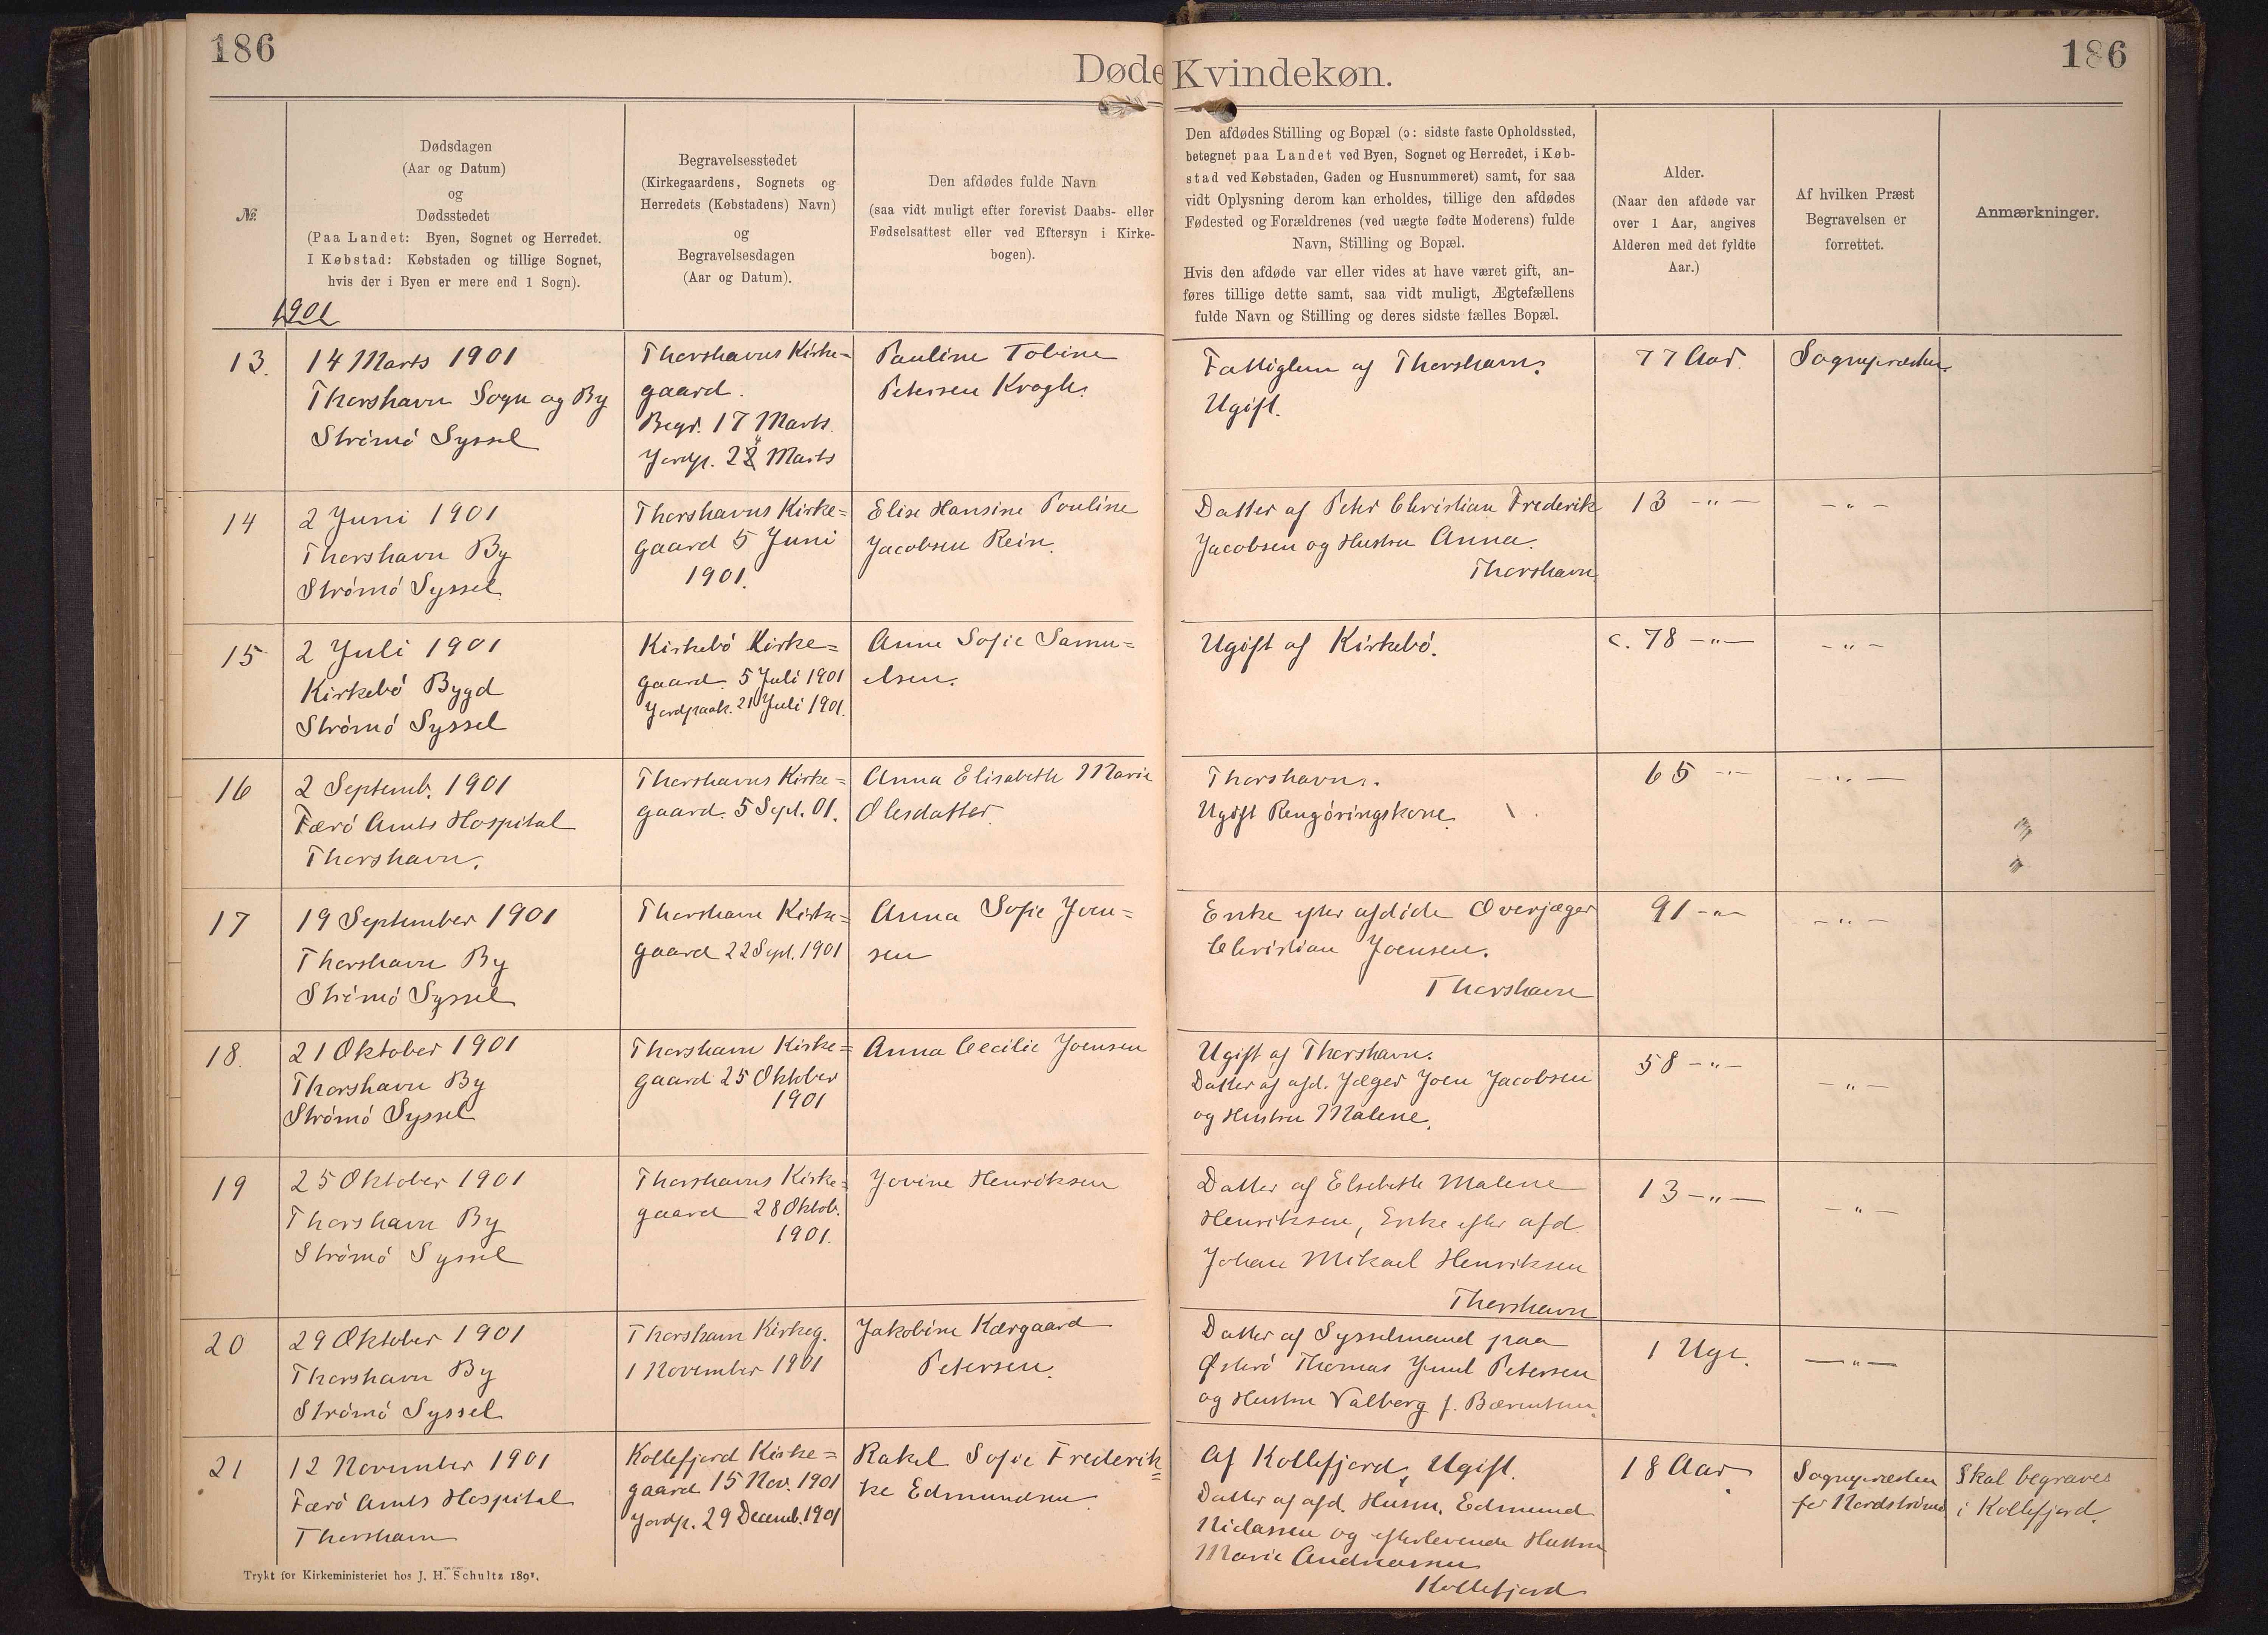 186
186
Døde Kvindekøn.
№.
Dødsdagen
(Aar og Datum)
og
Dødsstedet
(Paa Landet: Byen, Sognet og Herredet.
I Købstad: Købstaden og tillige Sognet,
hvis der i Byen er mere end 1 Sogn).
Begravelsesstedet
(Kirkegaardens, Sognets og
Herredets (Købstadens) Navn)
og
Begravelsesdagen
(Aar og Datum).
Den afdødes fulde Navn
(saa vidt muligt efter forevist Daabs- eller
Fødselsattest eller ved Eftersyn i Kirke-
bogen).
Den afdødes Stilling og Bopæl (ɔ: sidste faste Opholdssted,
betegnet paa Landet ved Byen, Sognet og Herredet, i Køb-
stad ved Købstaden, Gaden og Husnummeret) samt, for saa
vidt Oplysning derom kan erholdes, tillige den afdødes
Fødested og Forældrenes (ved uægte fødte Moderens) fulde
Navn, Stilling og Bopæl.
Hvis den afdøde var eller vides at have været gift, an-
føres tillige dette samt, saa vidt muligt, Ægtefællens
fulde Navn og Stilling og deres sidste fælles Bopæl.
Alder.
(Naar den afdøde var
over 1 Aar, angives
Alderen med det fyldte
Aar.)
Af hvilken Præst
Begravelsen er
forrettet.
Anmærkninger.
1901
13.
14 Marts 1901
Thorshavn Sogn og By
Strømø Syssel
Thorshavns Kirke=
gaard.
Begr. 17 Marts.
Jordp. 22 Marts
Pauline Tobine
Petersen Krogh.
Fattiglem af Thorshavn.
Ugift.
77 Aar.
Sognepræsten.
14
2 Juni 1901
Thorshavn By
Strømø Syssel
Thorshavns Kirke=
gaard 5 Juni
1901.
Elise Hansine Pouline
Jacobsen Rein.
Datter af Peter Christian Frederik
Jacobsen og Hustru Anna.
Thorshavn
13 -"-
-"-
15
2 Juli 1901
Kirkebø Bygd
Strømø Syssel
Kirkebø Kirke=
gaard. 5 Juli 1901
Jordpaak. 21 Juli 1901.
Anne Sofie Samu=
elsen.
Ugift af Kirkebø.
c. 78 -"-
-"-
16
2 Septemb. 1901
Færø Amts Hospital
Thorshavn.
Thorshavns Kirke=
gaard. 5 Sept. 01.
Anna Elisabeth Marie
Olesdatter.
Thorshavn.
Ugift Rengøringskone.
65 -"-
-"-
17
19 September 1901
Thorshavn By
Strømø Syssel
Thorshavn Kirke=
gaard 22 Sept. 1901
Anna Sofie Joen=
sen
Enke efter afdøde Overjæger
Christian Joensen.
Thorshavn
91 -"-
-"-
18.
21 Oktober 1901
Thorshavn By
Strømø Syssel
Thorshavn Kirke=
gaard 25 Oktober
1901
Anna Cecilie Joensen
Ugift af Thorshavn.
Datter af afd. Jæger Joen Jacobsen
og Hustru Malene.
58 -"-
-"-
19
25 Oktober 1901
Thorshavn By
Strømø Syssel
Thorshavns Kirke=
gaard 28 Oktob.
1901.
Jovine Henriksen
Datter af Elsebeth Malene
Henriksen, Enke efter afd.
Johan Mikael Henriksen
Thorshavn
13 -"-
-"-
20
29 Oktober 1901
Thorshavn By
Strømø Syssel
Thorshavn Kirkeg.
1 November 1901
Jakobine Kærgaard
Petersen.
Datter af Sysselmand paa
Østerø Thomas Juul Petersen
og Hustru Valborg f. Bærentsen.
1 Uge.
-"-
21
12 November 1901
Færø Amts Hospital
Thorshavn
Kollefjord Kirke=
gaard 15 Nov. 1901
Jordp. 29 Decemb. 1901
Rakel Sofie Frederik=
ke Edmundsen.
Af Kollefjord, Ugift.
Datter af afd. Husm. Edmund
Niclassen og efterlevende Hustru
Marie Andreassen
Kollefjord
18 Aar
Sognepræsten
for Nordstrømø
Skal begraves
i Kollefjord.
Trykt for Kirkeministeriet hos J. H. Schultz 1891.